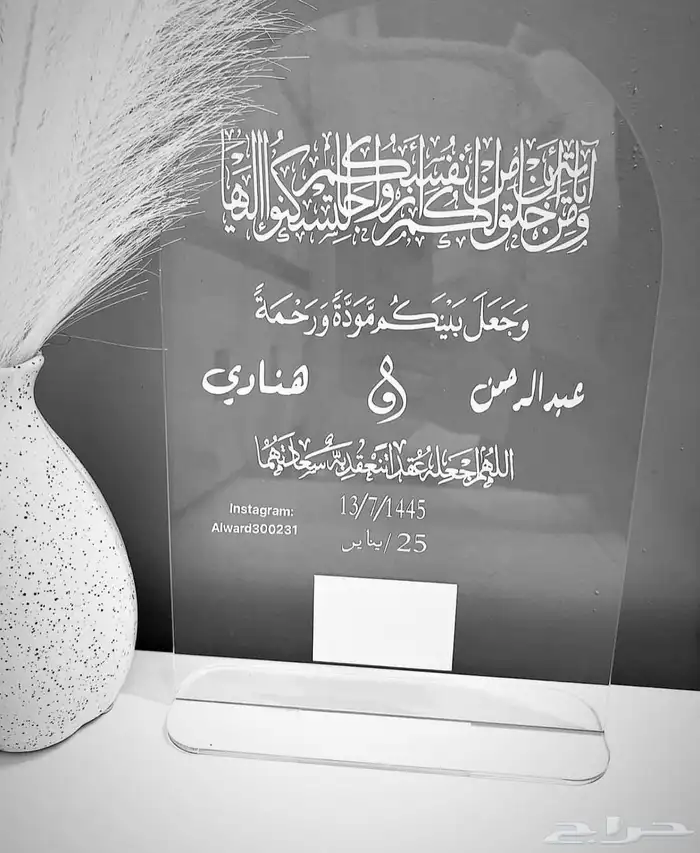 ومن آياته أن خلق لكم من أنفسكم أزواجا لتسكنوا إليها
وَجَعَلَ بَيْنَكُم مَّوَدَّةً وَرَحْمَةً
عبدالرحمن و هنادي
اللهم اجعله عقدا تنعقد به سعادتهما
13/7/1445
25 / يناير
Instagram:
Alward300231
حراج